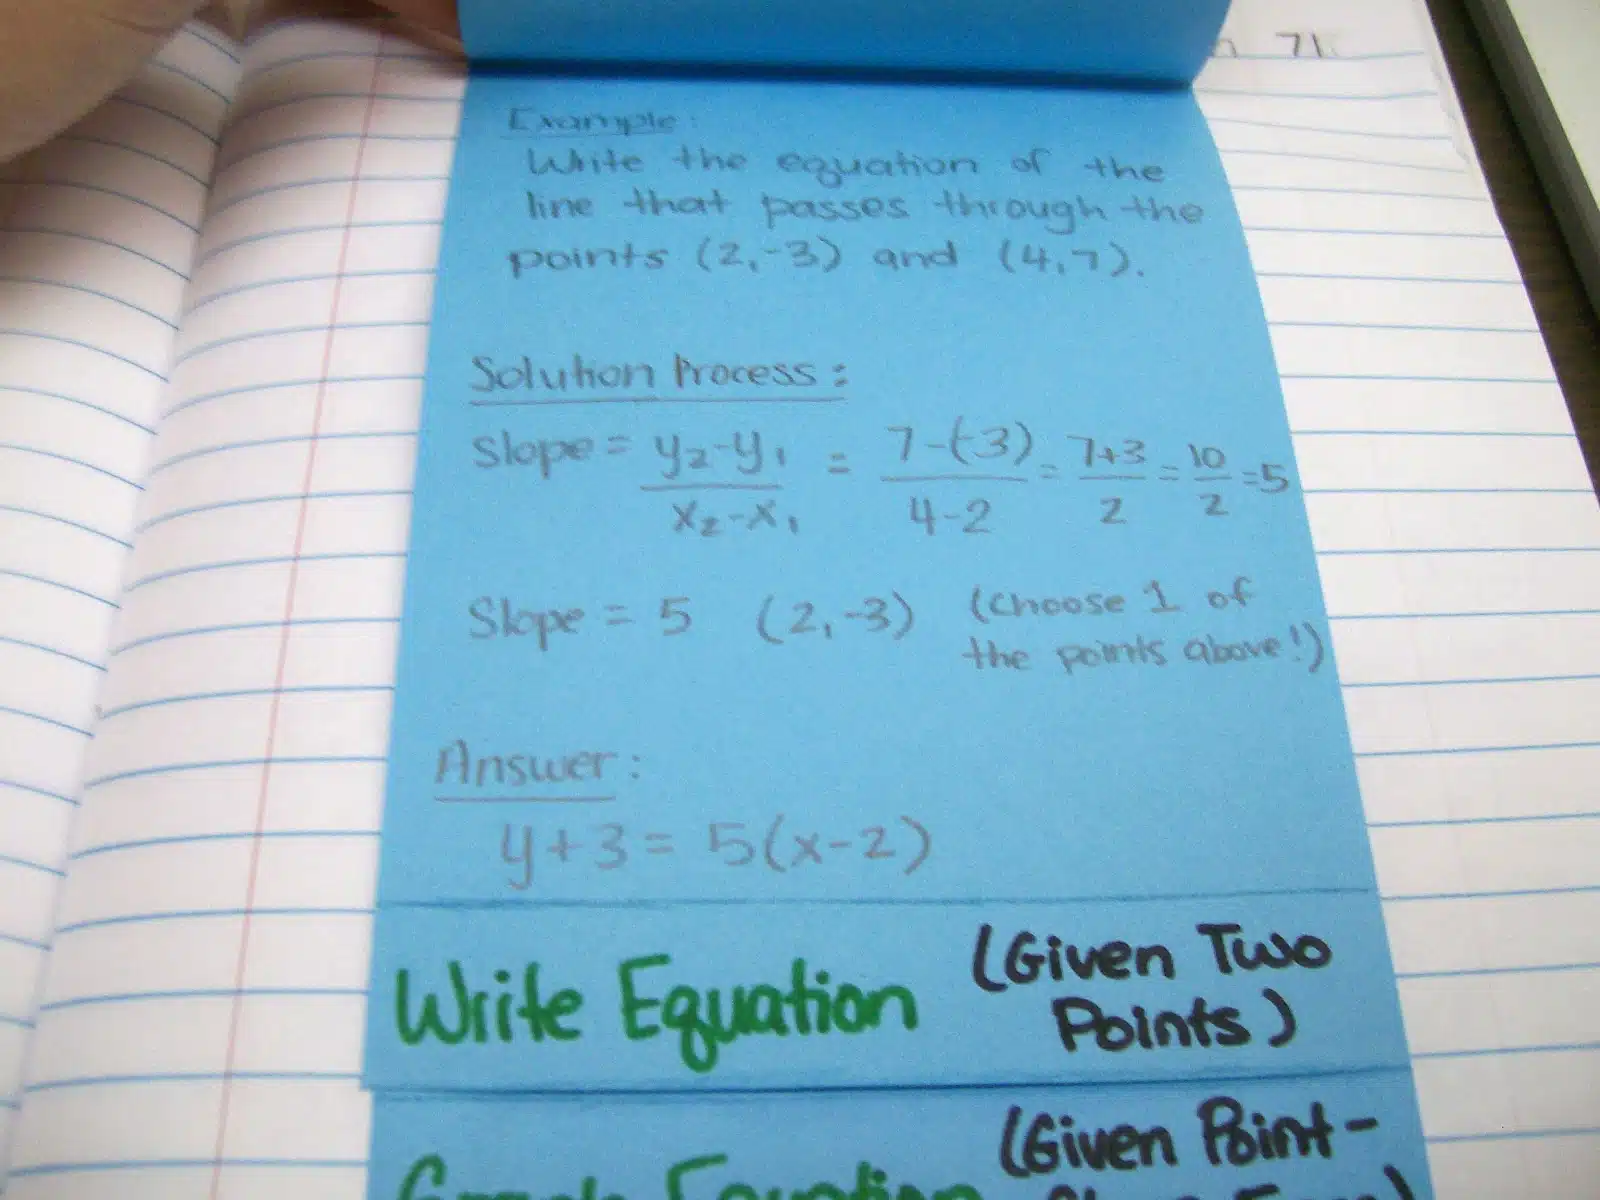 71
Example:
Write the equation of the
line that passes through the
points (2,-3) and (4,7).
Solution Process:
Slope = y₂-y₁ / x₂-x₁ = 7-(-3) / 4-2 = 7+3 / 2 = 10 / 2 = 5
Slope = 5 (2,-3) (Choose 1 of
the points above!)
Answer:
y+3 = 5(x-2)
Write Equation (Given Two
Points)
(Given Point-
Equation